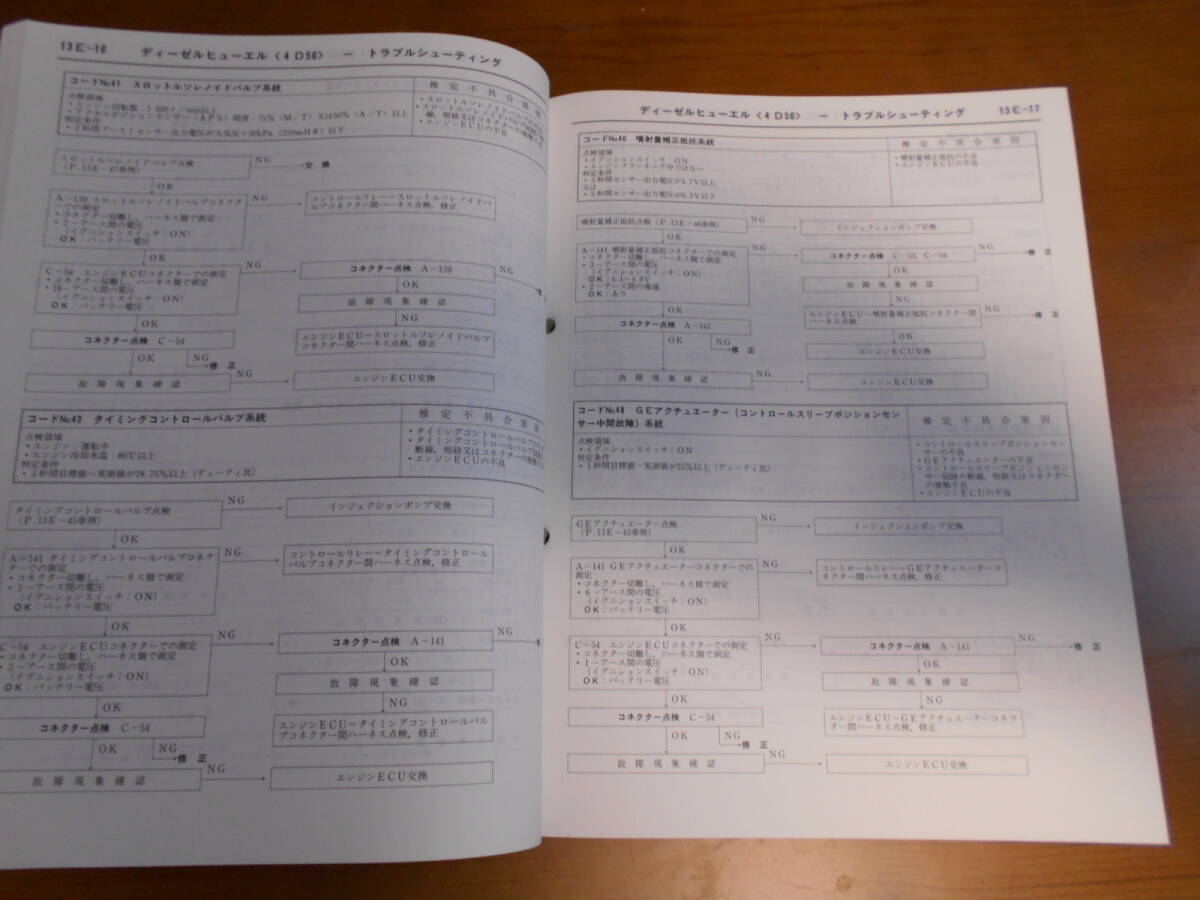 13E-16 ディーゼルヒューエル〈4D56〉 - トラブルシューティング
コードNo.41 スロットルソレノイドバルブ系統
推定不具合原因
点検領域
・エンジン回転数：1 400r／min以上
・アクセルポジションセンサー（APS）開度：75%（M／T）又は50%（A／T）以上
判定条件
・スロットルソレノイドバルブ
・エンジンECUの不良
スロットルソレノイドバルブ点検
（P.13E-47参照）
NG
交換
OK
A-139 スロットルソレノイドバルブコネクタ
ーでの測定
・コネクター切離し，ハーネス側で測定
・2-アース間の電圧
（イグニションスイッチ：ON）
OK：バッテリー電圧
NG
コントロールリレー～スロットルソレノイドバ
ルブコネクター間ハーネス点検，修正
OK
C-54 エンジンECUコネクターでの測定
・コネクター切離し，ハーネス側で測定
・18-アース間の電圧
（イグニションスイッチ：ON）
OK：バッテリー電圧
NG
コネクター点検 A-139
NG
OK
故障現象確認
NG
エンジンECU～スロットルソレノイドバルブ
コネクター間ハーネス点検，修正
OK
コネクター点検 C-54
OK
NG
修正
故障現象確認
NG
エンジンECU交換
コードNo.43 タイミングコントロールバルブ系統
推定不具合原因
点検領域
・エンジン：運転中
・エンジン冷却水温：80℃以上
判定条件
・5秒間目標値－実測値が18.75%以上（デューティ比）
・タイミングコントロールバルブの
・タイミングコントロールバルブ
断線，短絡又はコネクターの接触
・エンジンECUの不良
タイミングコントロールバルブ点検
（P.13E-45参照）
NG
インジェクションポンプ交換
OK
A-141 タイミングコントロールバルブコネク
ターでの測定
・コネクター切離し，ハーネス側で測定
・5-アース間の電圧
（イグニションスイッチ：ON）
OK：バッテリー電圧
NG
コントロールリレー～タイミングコントロール
バルブコネクター間ハーネス点検，修正
OK
C-54 エンジンECUコネクターでの測定
・コネクター切離し，ハーネス側で測定
・3-アース間の電圧
（イグニションスイッチ：ON）
OK：バッテリー電圧
NG
コネクター点検 A-141
NG
OK
故障現象確認
NG
エンジンECU～タイミングコントロールバル
ブコネクター間ハーネス点検，修正
OK
コネクター点検 C-54
OK
NG
修正
故障現象確認
NG
エンジンECU交換
ディーゼルヒューエル〈4D56〉 - トラブルシューティング 13E-17
コードNo.46 噴射量補正抵抗系統
推定不具合原因
点検領域
・イグニションスイッチ：ON
・エンジンクランキング中ではない
判定条件
・5秒間センサー出力電圧が4.7V以上
又は
・5秒間センサー出力電圧が0.3V以下
・噴射量補正抵抗の不良
・エンジンECUの不良
噴射量補正抵抗点検（P.13E-46参照）
NG
インジェクションポンプ交換
OK
A-141 噴射量補正抵抗コネクターでの測定
・コネクター切離し，ハーネス側で測定
・3-アース間の電圧
（イグニションスイッチ：ON）
OK：4.1～4.9V
・2-アース間の導通
OK：あり
NG
コネクター点検 C-53，C-54
NG
修正
OK
故障現象確認
NG
エンジンECU～噴射量補正抵抗コネクター間
ハーネス点検
NG
修正
OK
エンジンECU交換
OK
コネクター点検 A-141
OK
NG
修正
故障現象確認
NG
エンジンECU交換
コードNo.48 GEアクチュエーター（コントロールスリーブポジションセン
サー中間故障）系統
推定不具合原因
点検領域
・イグニションスイッチ：ON
判定条件
・1秒間目標値－実測値が25%以上（デューティ比）
・コントロールスリーブポジションセン
サーの不良
・GEアクチュエーターの不良
・コントロールスリーブポジションセン
サー回路の断線，短絡又はコネクター
の接触不良
・エンジンECUの不良
GEアクチュエーター点検
（P.13E-45参照）
NG
インジェクションポンプ交換
OK
A-141 GEアクチュエーターコネクターでの
測定
・コネクター切離し，ハーネス側で測定
・6-アース間の電圧
（イグニションスイッチ：ON）
OK：バッテリー電圧
NG
コントロールリレー～GEアクチュエーターコ
ネクター間ハーネス点検，修正
OK
C-54 エンジンECUコネクターでの測定
・コネクター切離し，ハーネス側で測定
・1-アース間の電圧
（イグニションスイッチ：ON）
OK：バッテリー電圧
NG
コネクター点検 A-141
NG
修正
OK
故障現象確認
NG
エンジンECU～GEアクチュエーターコネク
ター間ハーネス点検，修正
OK
コネクター点検 C-54
OK
NG
修正
故障現象確認
NG
エンジンECU交換